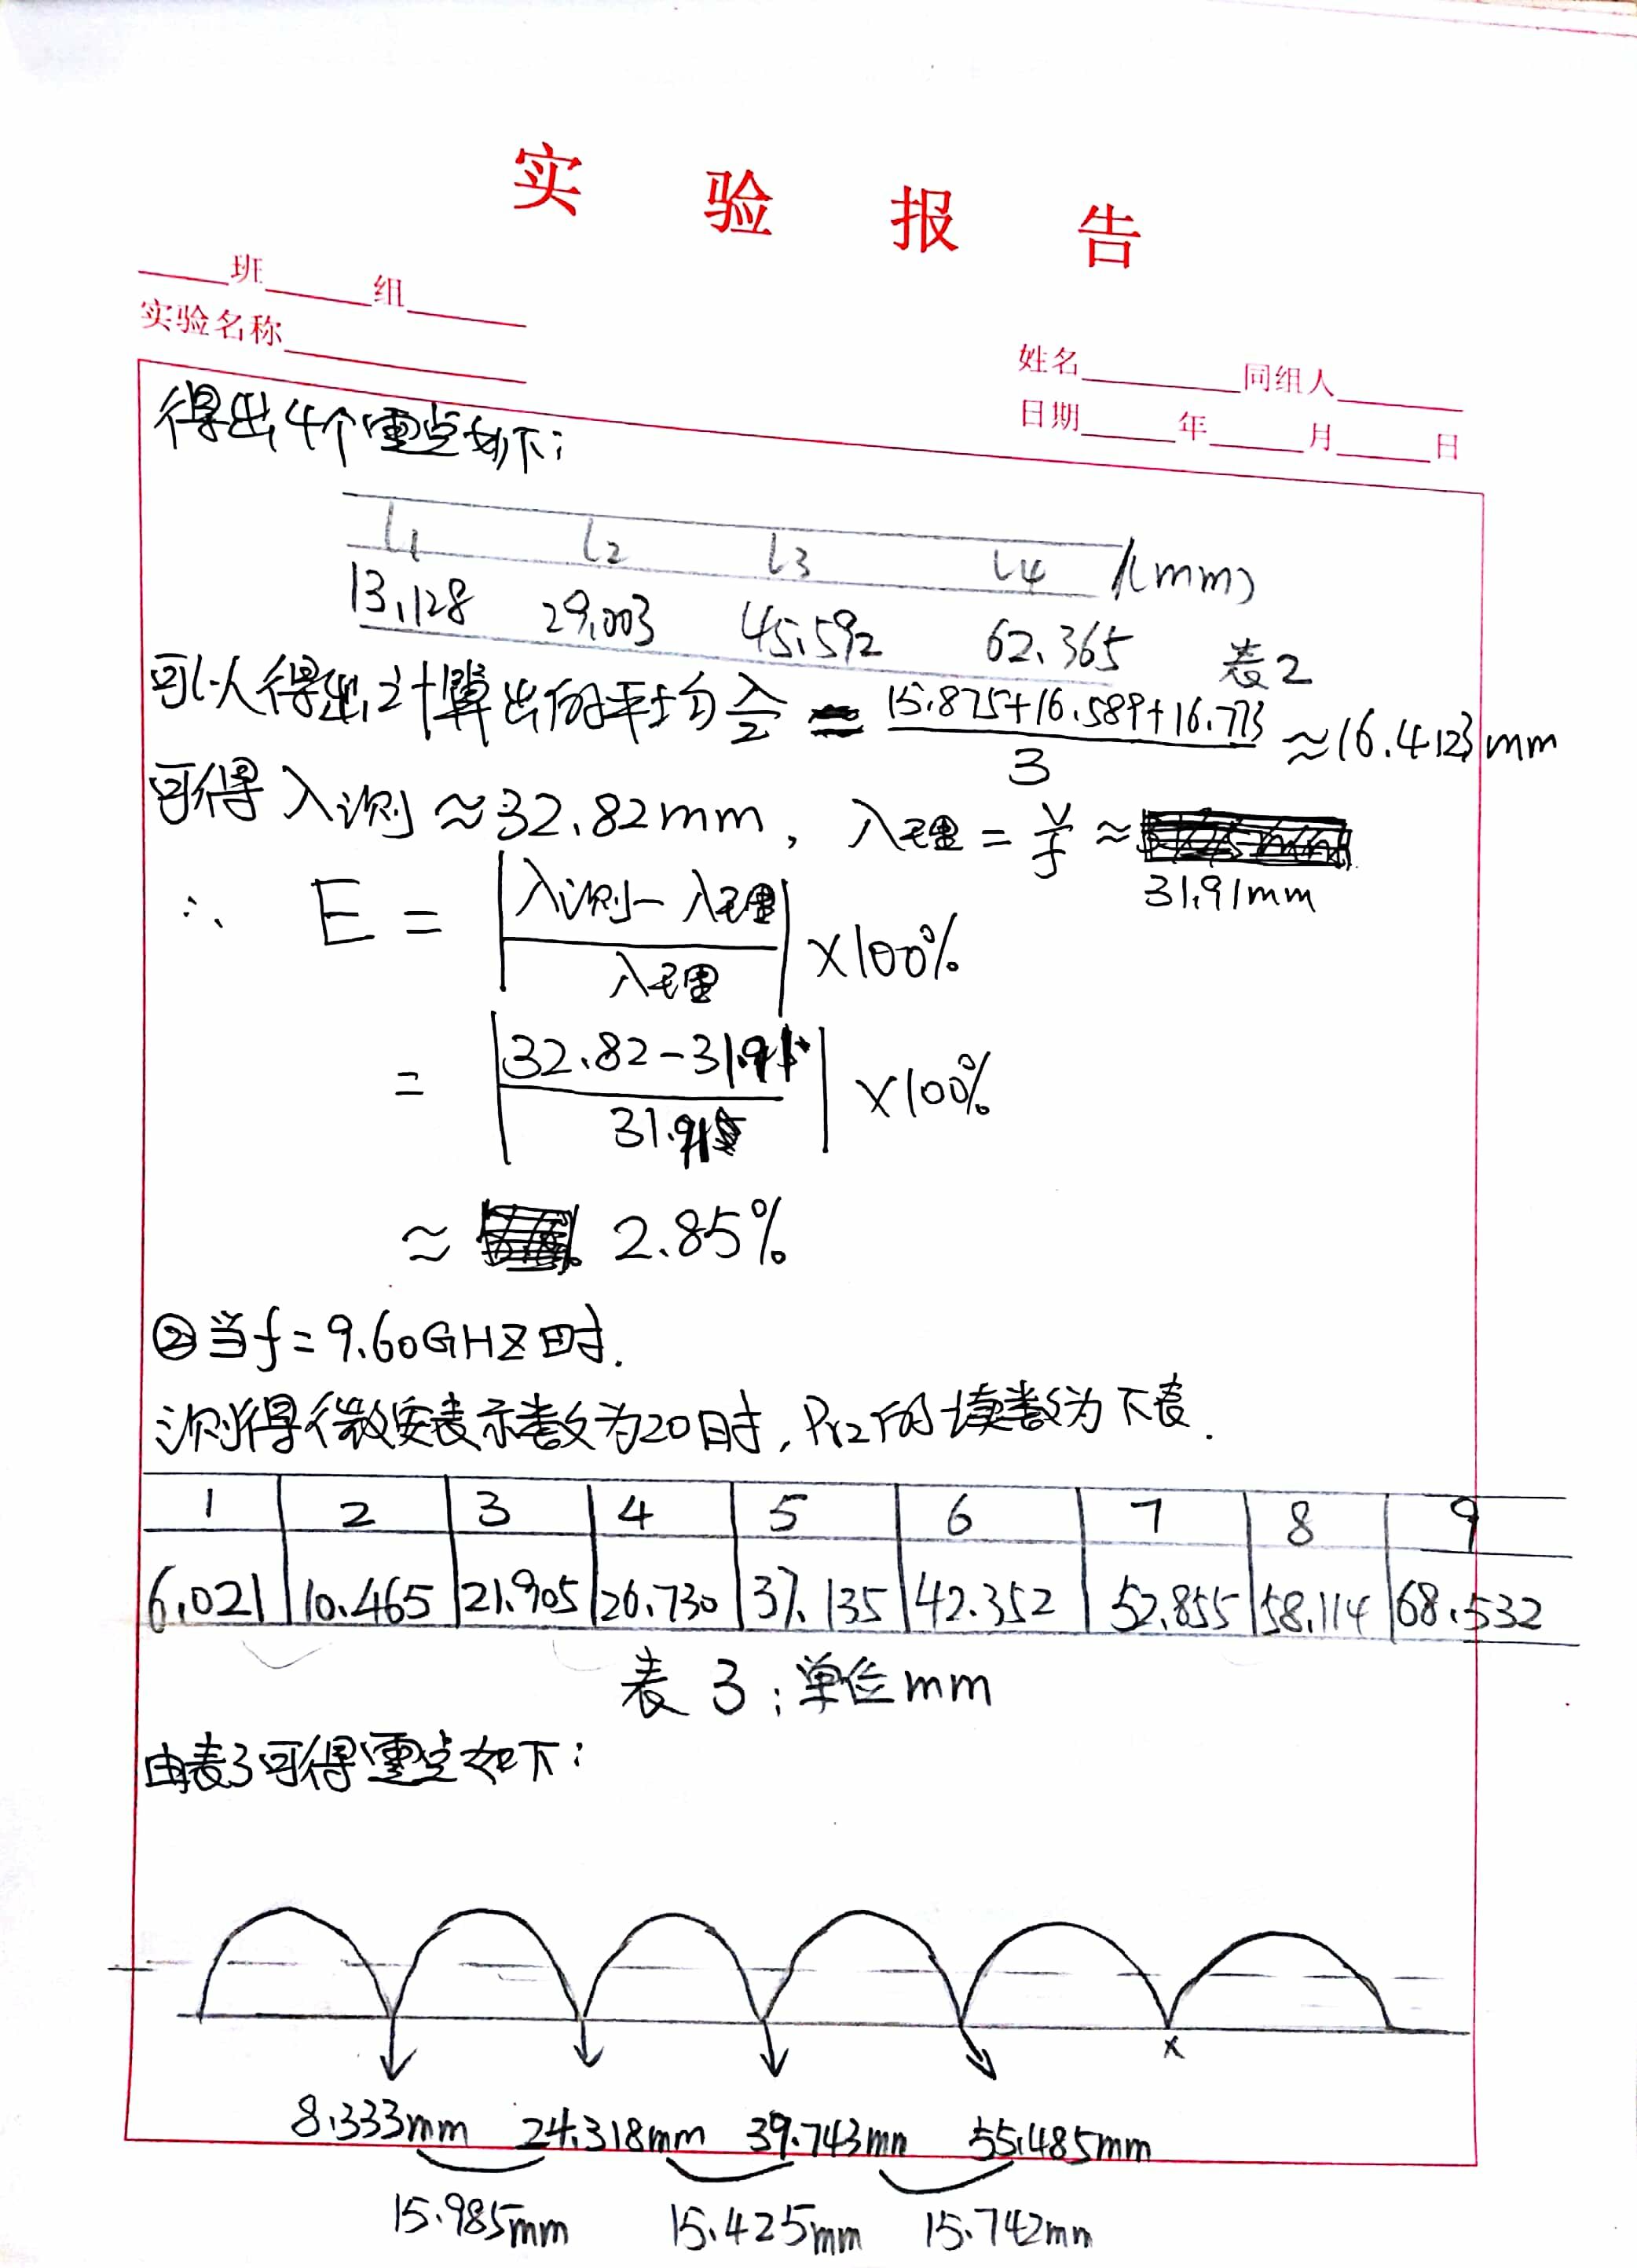 实 验 报 告
班 组
实验名称
姓名 同组人
日期 年 月 日
得出4个零点如下:
l1 l2 l3 l4 /(mm)
13.128 29.003 45.592 62.365 表2
可以得出,计算出的平均 λ/2 = (15.875+16.589+16.773)/3 ≈16.4123mm
可得 λ测 ≈32.82mm, λ理 = v/f ≈
31.91mm
∴ E = |(λ测-λ理)/λ理| ×100%
= |(32.82-31.91)/31.91| ×100%
≈ 2.85%
②当f=9.60GHZ时.
测得微安表示数为20时,Pr2的读数为下表.
1 2 3 4 5 6 7 8 9
6.021 10.465 21.905 26.730 37.135 42.352 52.855 58.114 68.532
表 3:单位mm
由表3可得零点如下:
x
8.333mm 24.318mm 39.743mm 55.485mm
15.985mm 15.425mm 15.742mm